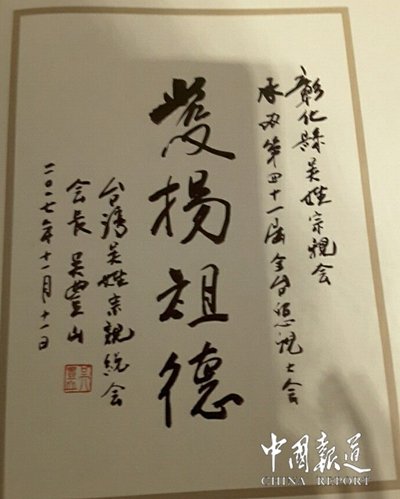 彰化縣吳姓宗親会
承办第四十一屆全台懇親大会
發揚祖德
台灣吳姓宗親總会
会長 吳豐山
二〇一七年十一月十一日
中國報道
CHINA REPORT